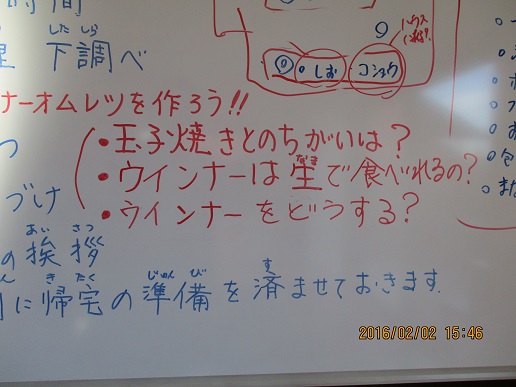 時間
しお コショウ
したしら
下調べ
ナーオムレツを作ろう!!
・玉子焼きとのちがいは?
なま
・ウインナーは生で食べれるの?
づけ
・ウインナーをどうする?
あい さつ
の挨拶
き たく じゅん び す
に帰宅の準備を済ませておきます.
2016/02/02 15:46